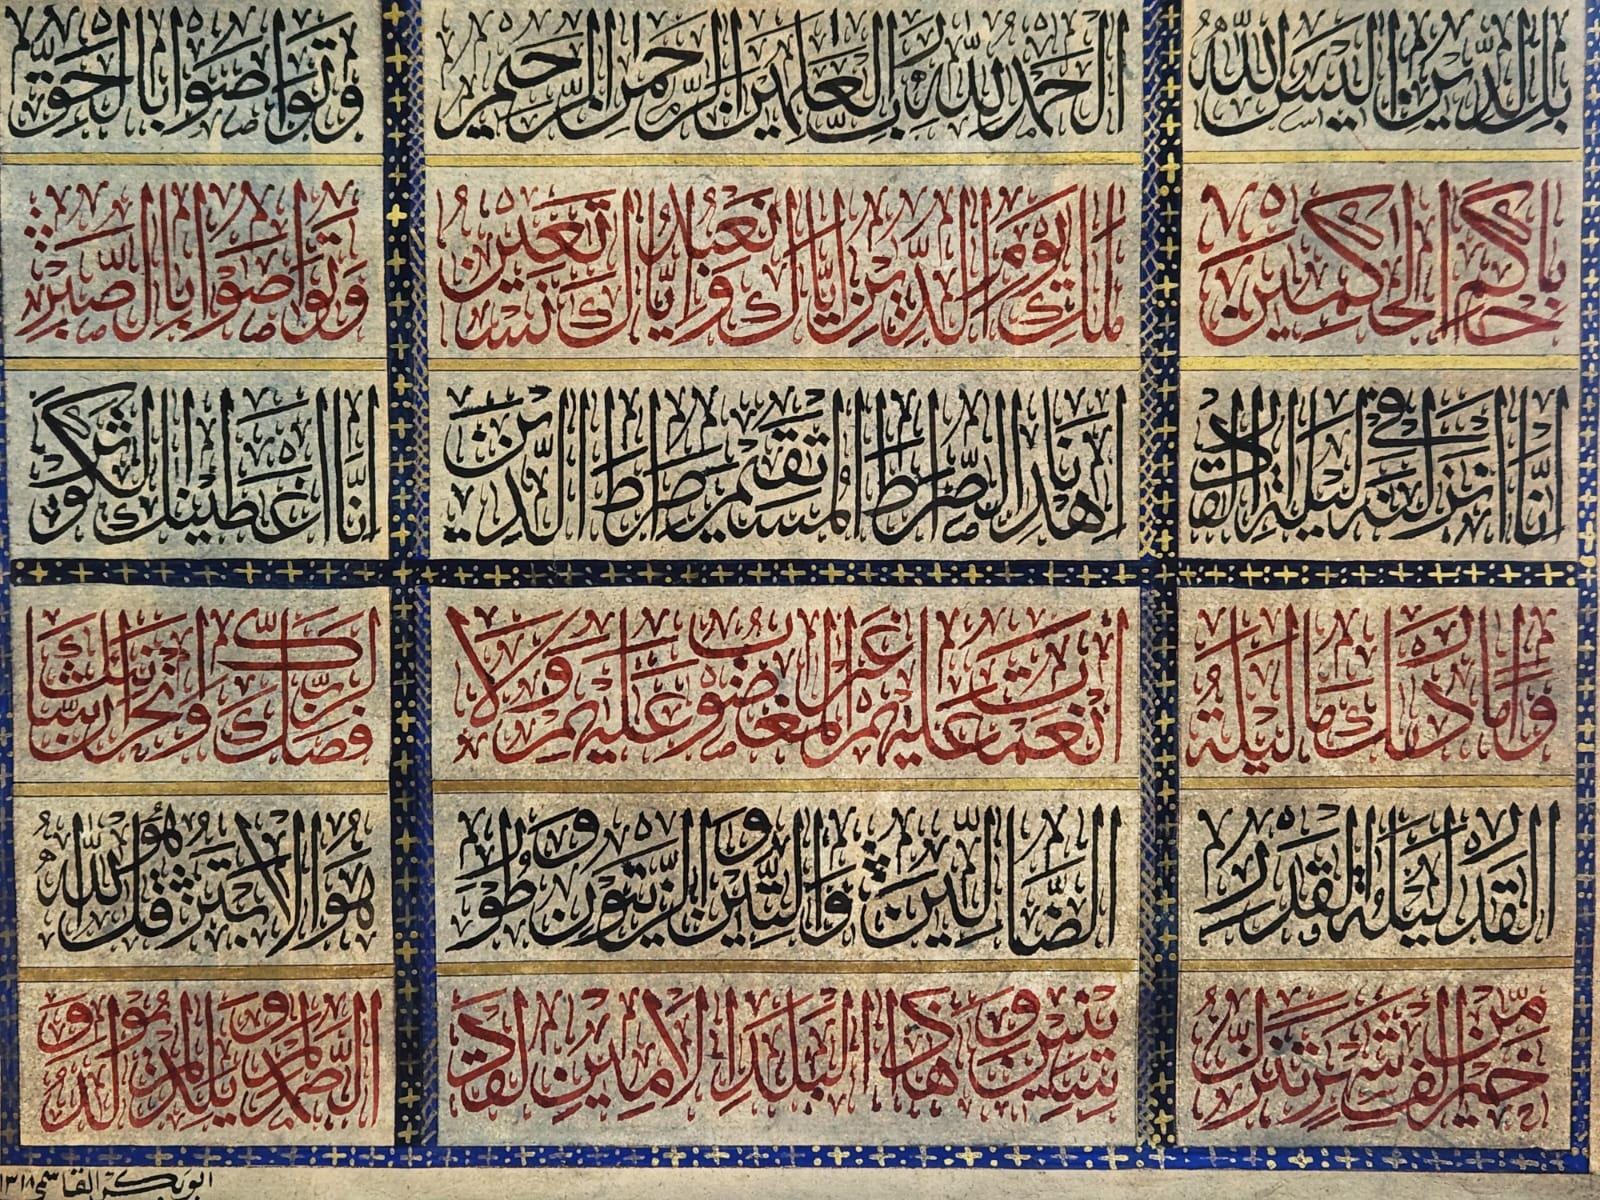 بالدين اليس الله
باحكم الحاكمين
انا انزلنه في ليلة القدر
وما ادراك ما ليلة
القدر ليلة القدر
خير من الف شهر تنزل
الحمد لله رب العلمين الرحمن الرحيم
ملك يوم الدين اياك نعبد واياك نستعين
اهدنا الصراط المستقيم صراط الذين
انعمت عليهم غير المغضوب عليهم ولا
الضالين والتين والزيتون وطور
سينين وهذا البلد الامين لقد
وتواصوا بالحق
وتواصوا بالصبر
انا اعطينك الكوثر
فصل لربك وانحر ان شانئك
هو الابتر قل هو الله
الصمد لم يلد ولم يولد
ابوبكر القاسمي ١٣١٨